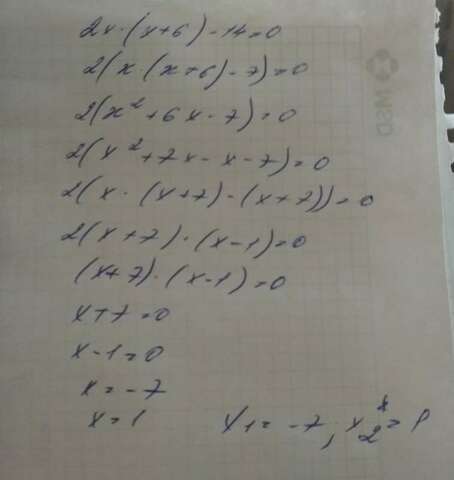 2x·(x+6)-14=0
2(x·(x+6)-7)=0
2(x²+6x-7)=0
2(x²+7x-x-7)=0
2(x·(x+7)-(x+7))=0
2(x+7)·(x-1)=0
(x+7)·(x-1)=0
x+7=0
x-1=0
x=-7
x=1
x₁=-7; x₂=1
MED